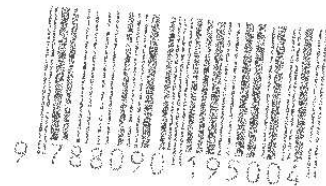 9 788090 195004